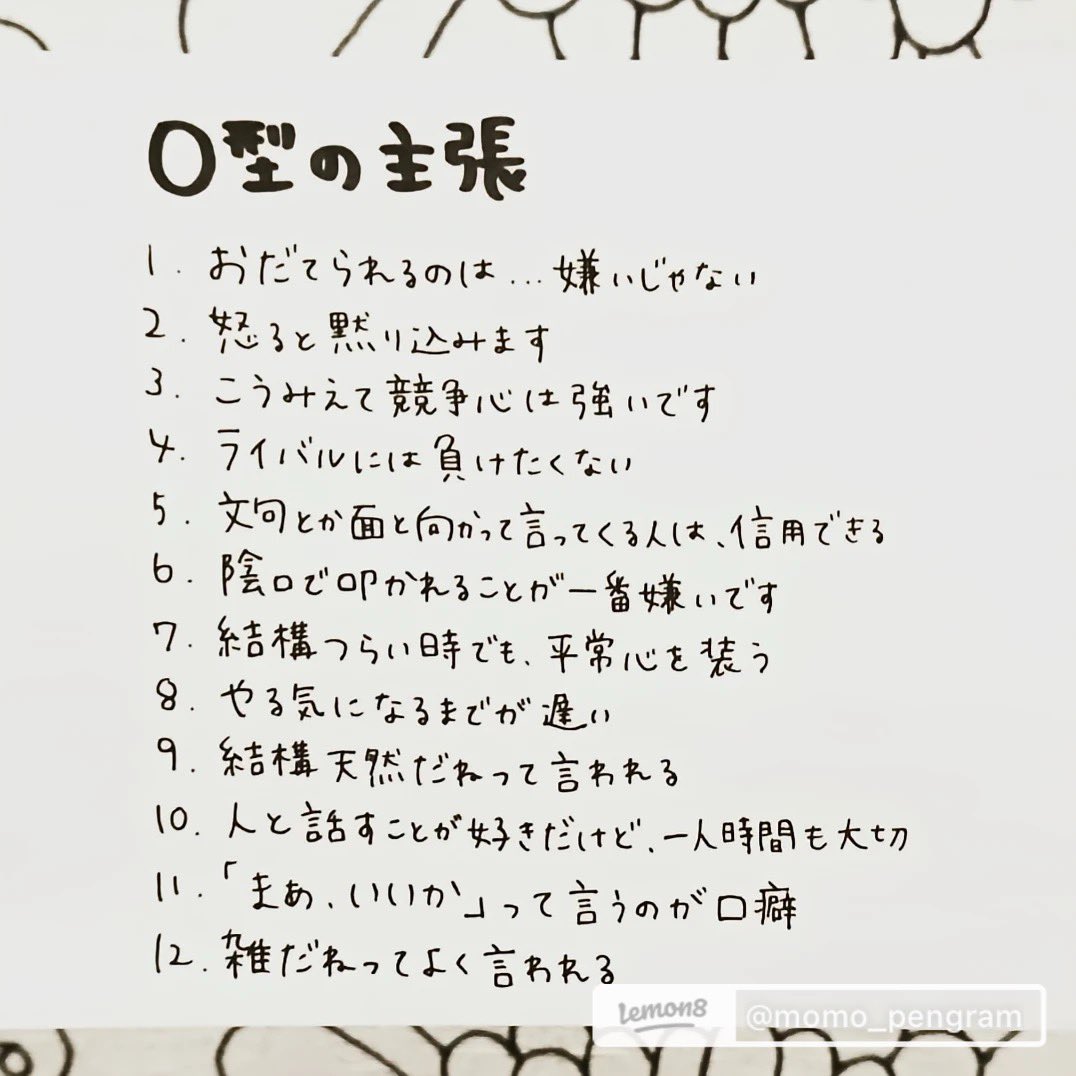 O型の主張
1. おだてられるのは…嫌いじゃない
2. 怒ると黙り込みます
3. こうみえて競争心は強いです
4. ライバルには負けたくない
5. 文句とか面と向かって言ってくる人は、信用できる
6. 陰口で叩かれることが一番嫌いです
7. 結構つらい時でも、平常心を装う
8. やる気になるまでが遅い
9. 結構天然だねって言われる
10. 人と話すことが好きだけど、一人時間も大切
11. 「まあ、いいか」って言うのが口癖
12. 雑だねってよく言われる
lemon8 @momo_pengram